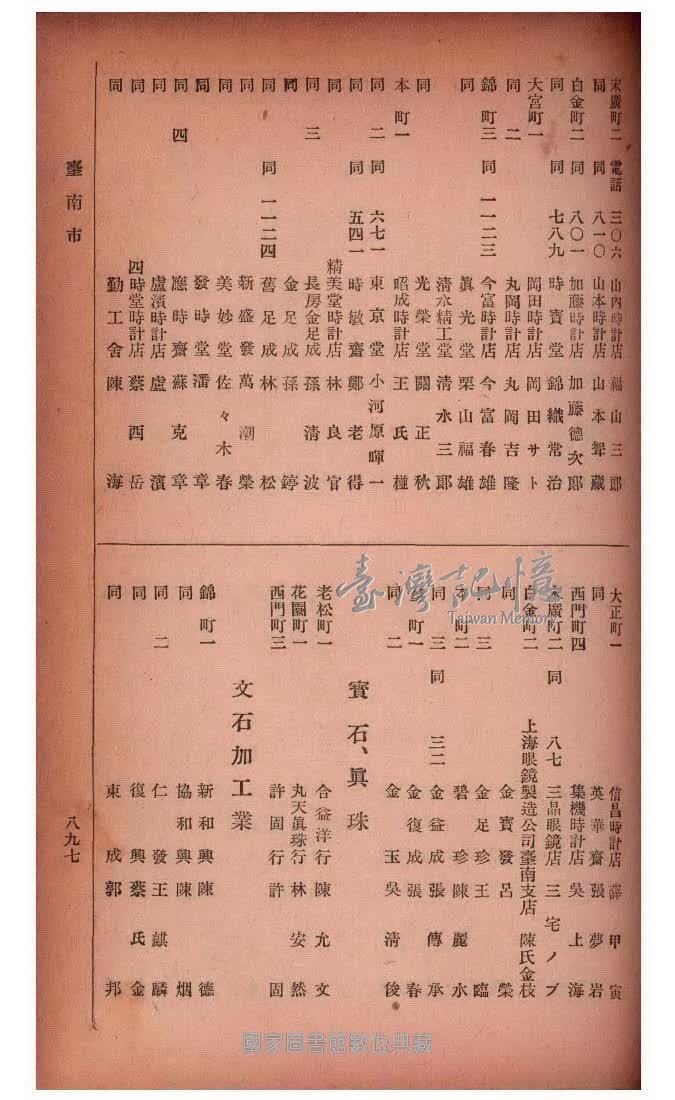 末廣町二 電話 三〇六 山內時計店 福山三郎
同 同 八一〇 山本時計店 山本聟藏
白金町二 同 八〇一 加藤時計店 加藤德次郎
同 同 七八九 時寶堂 錦織常治
大宮町一 岡田時計店 岡田サト
同 二 丸岡時計店 丸岡吉隆
錦町三 同 一一二三 今富時計店 今富春雄
同 眞光堂 栗山福雄
清水精工堂 清水三郎
同 光榮堂 闘正秋
本町一 昭成時計店 王氏
同 二 同 六七一 東京堂 小河原暉一
同 同 五四一 時敏齋 鄭老得
同 精美堂時計店 林良官
同 三 長房金足成 孫清波
同 金足成 孫
同 同 一一二四 舊足成 林松
同 新盛發 萬潮榮
同 美妙堂 佐々木春
同 發時堂 潘章
同 四 應時齋 蘇克章
同 盧濱時計店 盧濱
同 四時堂時計店 蔡西岳
同 勤工舍 陳海
大正町一 信昌時計店 薛甲寅
同 英華齋 張夢岩
西門町四 集機時計店 吳上海
末廣町二 同 八七 三晶眼鏡店 三宅ノブ
白金町二 上海眼鏡製造公司臺南支店 陳氏金枝
同 金寶發 呂榮
同 三 金足珍 王臨
本町二 碧珍 陳麗水
同 三 同 三二 金益成 張傳承
町一 金復成 張春
同 二 金玉 吳清俊
寶石、眞珠
老松町一 合益洋行 陳允文
花園町一 丸天眞珠行 林安然
西門町三 許固行 許固
文石加工業
錦町一 新和興 陳德
同 協和興 陳烟
同 二 仁發 王麒麟
同 復興 蔡氏金
同 東成 郭邦
臺南市
八九七
臺灣記憶
Taiwan Memory
國家圖書館數位典藏